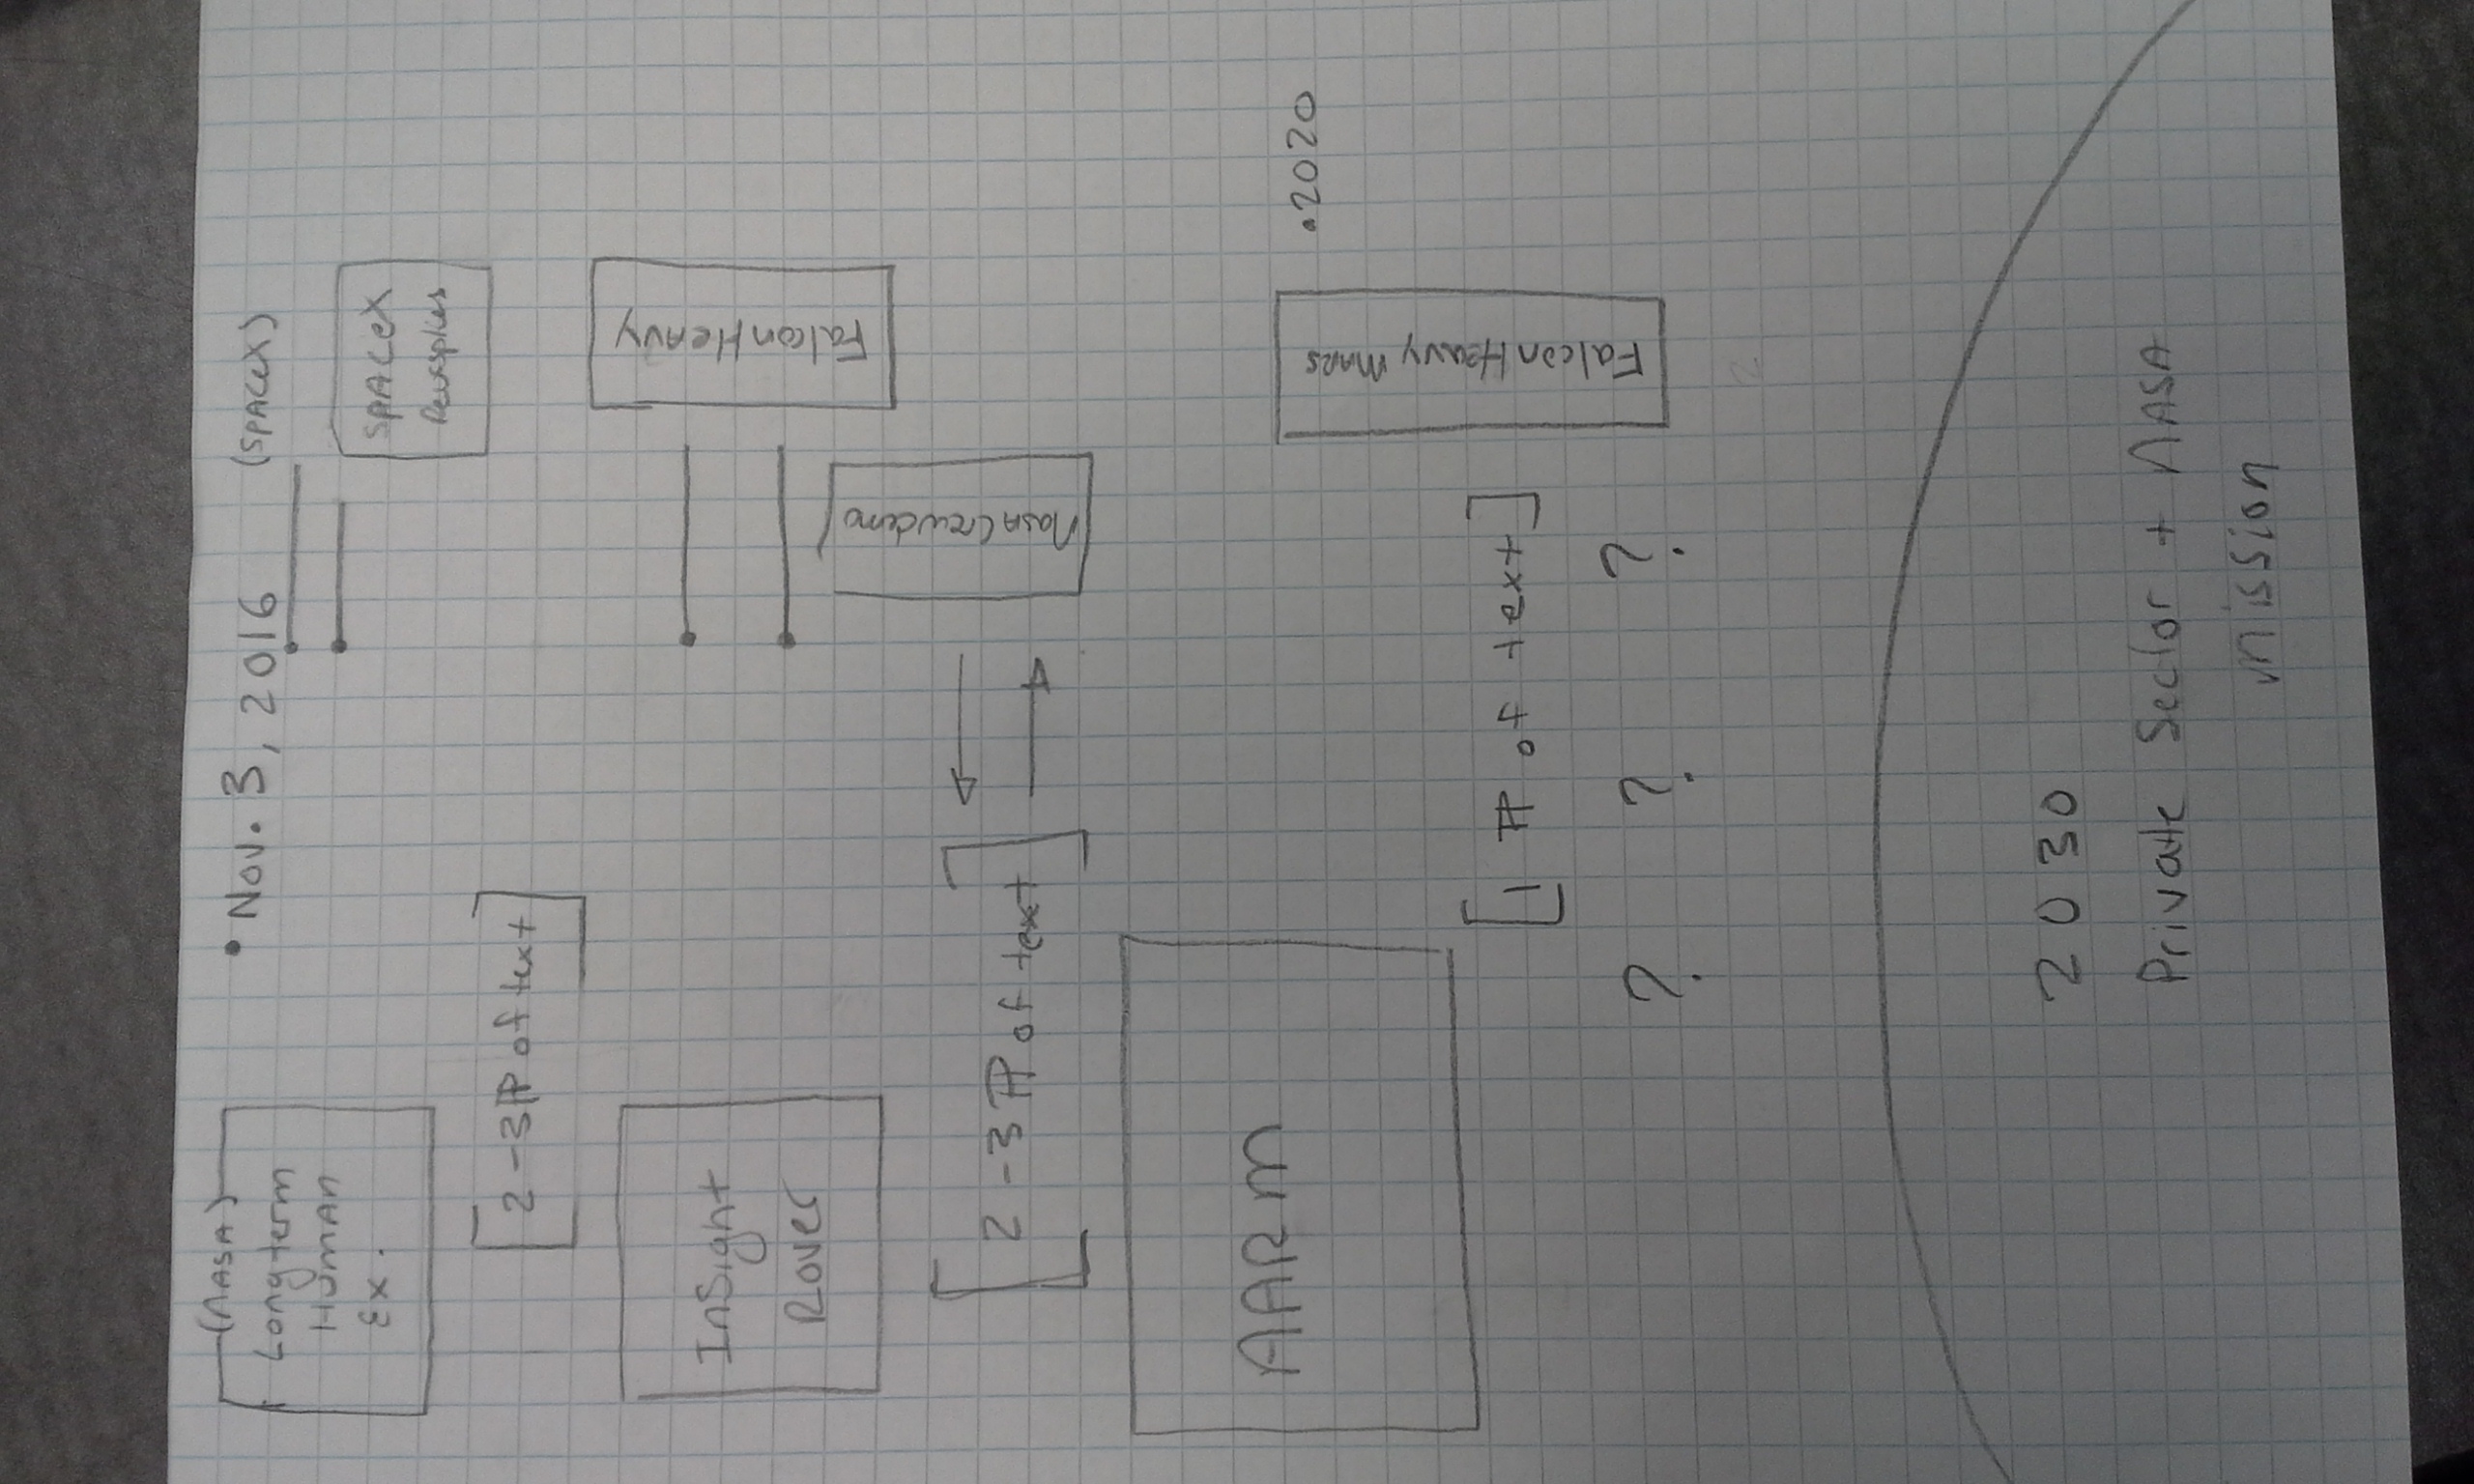 (NASA)
Longterm
Human
Ex.
• Nov. 3, 2016
(SPACEX)
SPACEX
[2-3 ¶ of text]
InSight
Rover
Falcon HEAVY
NASA Crew demo
[2-3 ¶ of text]
AARM
Falcon Heavy MARS
•2020
[1 ¶ of text]
? ? ?
2030
Private Sector + NASA
mission